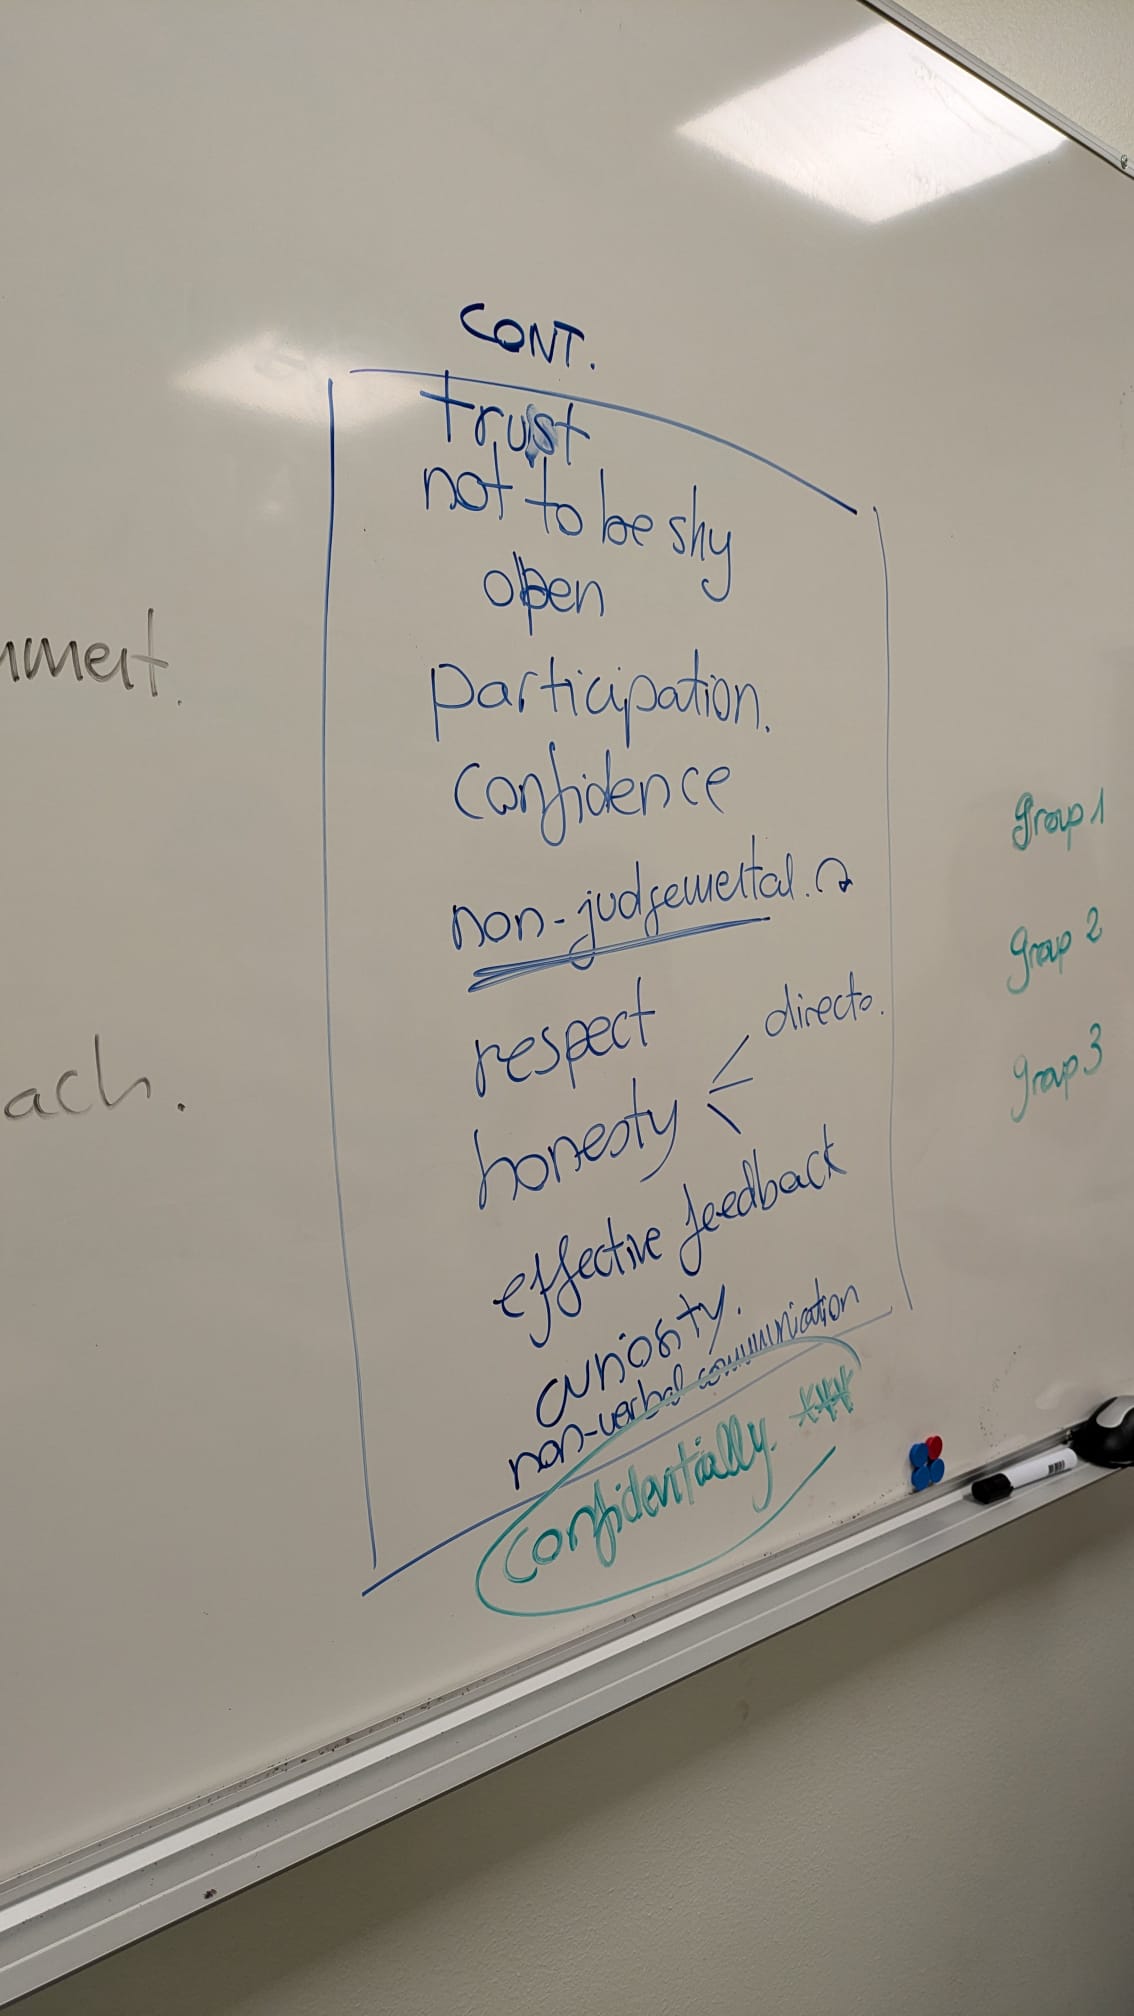 CONT.
trust
not to be shy
open
participation.
confidence
non-judgemental.
respect
directo.
honesty
effective feedback
curiosity.
non-verbal communication
confidentially. ***
ach.
group 1
group 2
group 3